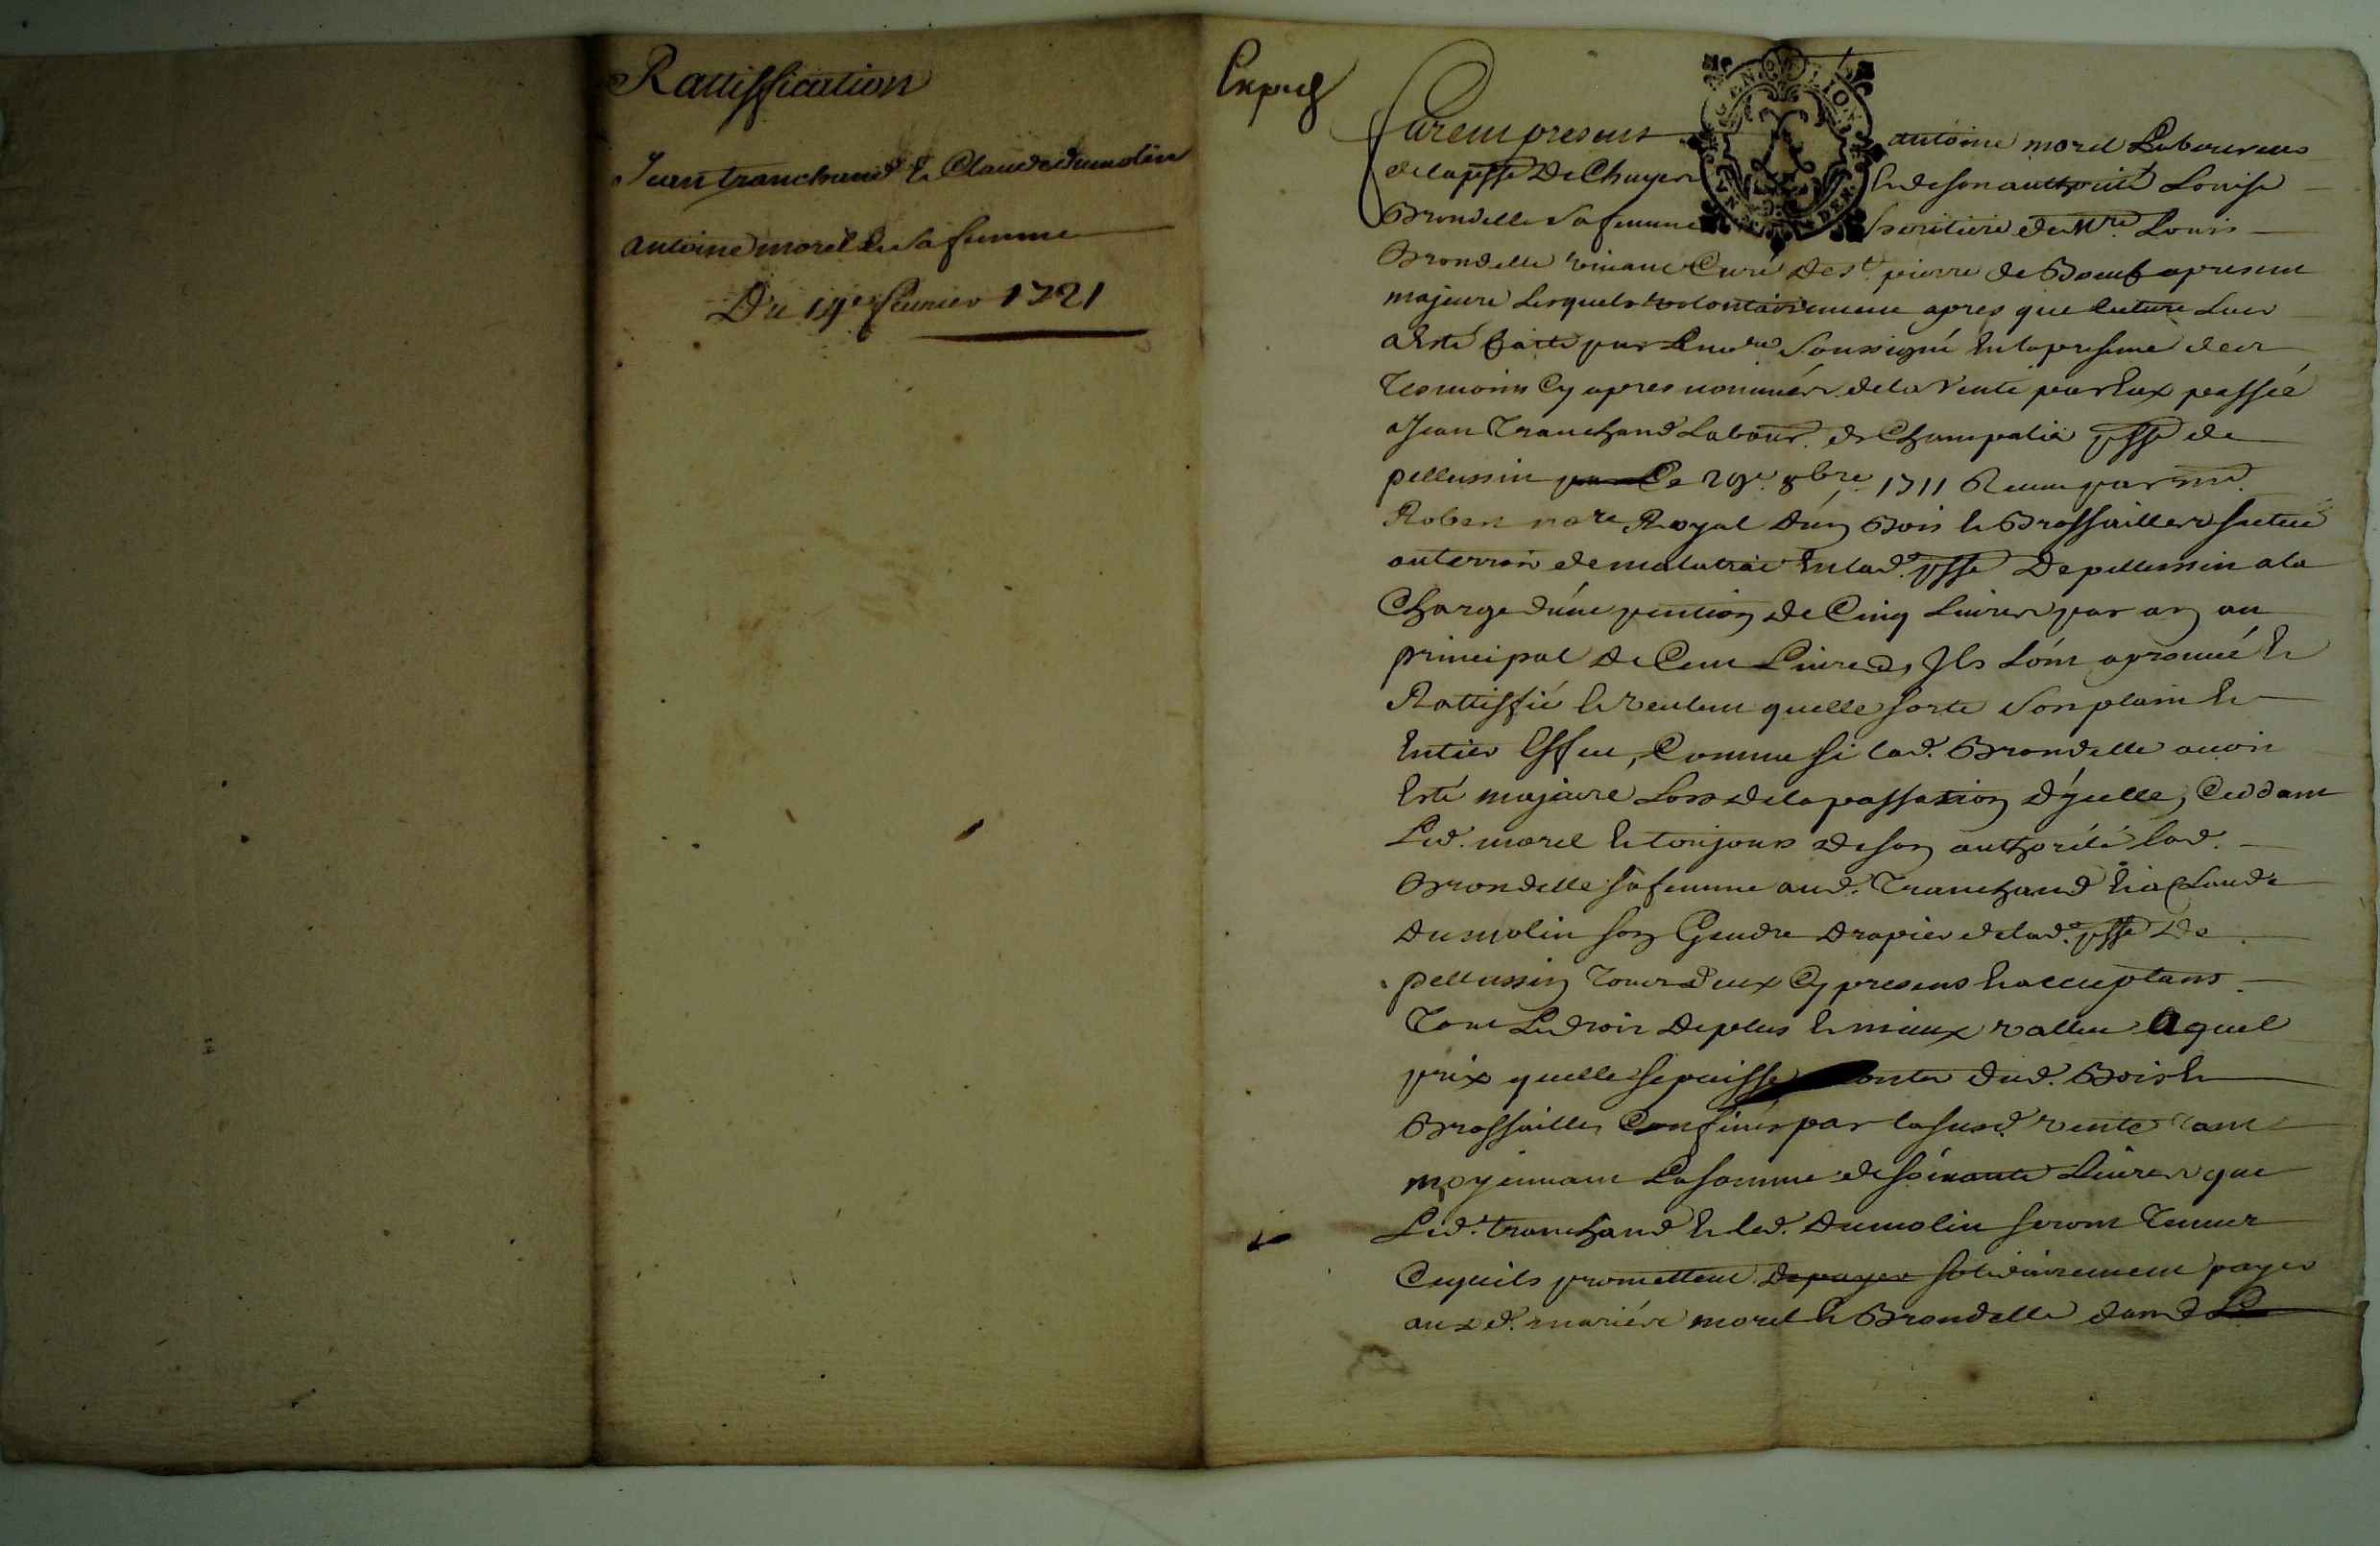 Rattiffication
Jean tranchand & Claude dumolin
antoine morel & sa femme
Du 19e feurier 1721
Expié
furent presens antoine morel Laboureur
de la psse De Chuyer & de son authorité Louise
Brondelle sa femme heritiere de Mre Louis
Brondelle viuant Curé de st. pierre de Boeuf apresent
majeure Lesquels volontairement apres que lecture Leur
a Esté faite par Le nore soussigné En la presence des
Tesmoins Cy apres nommés de la vente par Eux passée
a Jean Tranchand Labour. de Champalia psse de
pellussin Le 29e 8bre 1711 Receue par me
Robert nore Royal d'un Bois & Brossailles scitué
au terroir de malatrai En lad. psse De pellussin a la
Charge d'une pention de Cinq Liures par an au
principal de Cent Liures, Ils L'ont aprouué &
Rattiffié & veulent quelle sorte son plain &
Entier Effect, Comme si lad. Brondelle auoit
Esté majeure Lors de la passation d'ycelle, Ceddant
Led. morel & toujours de son authorité lad.
Brondelle sa femme aud. Tranchand & a Claude
dumolin son Gendre drapier de lad. psse de
pellussin Tous deux Cy presens & acceptans
Tout Le droit de plus & mieux vallue a quel
prix quelle se puisse monter dud. Bois &
Brossailles Confinés par la susd. vente tant
moyennant La somme de soixante Liures que
Led. tranchand & led. dumolin seront Tenus
Ce quils promettent de payer solidairement payer
aux d. mariés morel & Brondelle dans